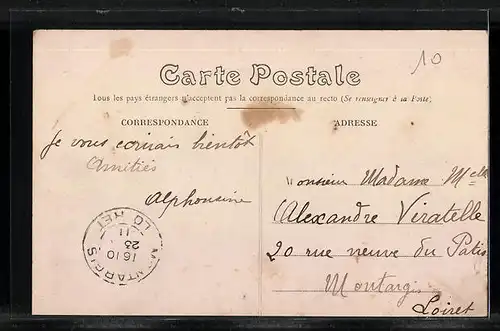 10
Carte Postale
Tous les pays étrangers n'acceptent pas la correspondance au recto (Se renseigner à la Poste)
CORRESPONDANCE
ADRESSE
Je vous écrirais bientôt
Amitiés
Alphonsine
Monsieur Madame Melle
Alexandre Viratelle
20 rue neuve du Patis
Montargis
Loiret
MONTARGIS
16 10
23
11
LOIRET